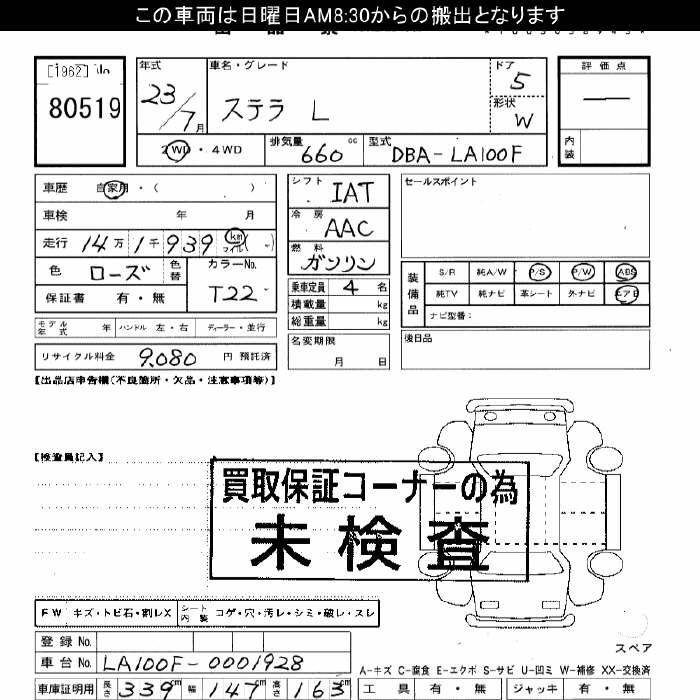 この車両は日曜日AM8:30からの搬出となります
[1962] No
80519
年式
23/7月
車名・グレード
ステラ L
ドア
5
形状
W
評価点
—
内装
2WD・4WD
排気量
660 cc
型式
DBA-LA100F
車歴 自家用・( )
車検 年 月
走行 14万1千939 km マイル( )
色 ローズ
色替
カラーNo.
T22
保証書 有・無
シフト
IAT
冷房
AAC
燃料
ガソリン
乗車定員 4 名
積載量 kg
総重量 kg
名変期限
月 日
セールスポイント
装備品
S/R 純A/W P/S P/W ABS
純TV 純ナビ 革シート 外ナビ エアB
ナビ型番:
後日品
モデル年式 年 ハンドル 左・右 ディーラー・並行
リサイクル料金 9,080 円 預託済
【出品店申告欄(不良箇所・欠品・注意事項等)】
【検査員記入】
買取保証コーナーの為
未検査
FW キズ・トビ石・割レX
シート内装 コゲ・穴・汚レ・シミ・破レ・スレ
スペア
登録 No.
車台 No. LA100F-0001928
A-キズ C-腐食 E-エクボ S-サビ U-凹ミ W-補修 XX-交換済
車庫証明用 長さ 339cm 幅 147cm 高さ 163cm
工具 有・無 ジャッキ 有・無